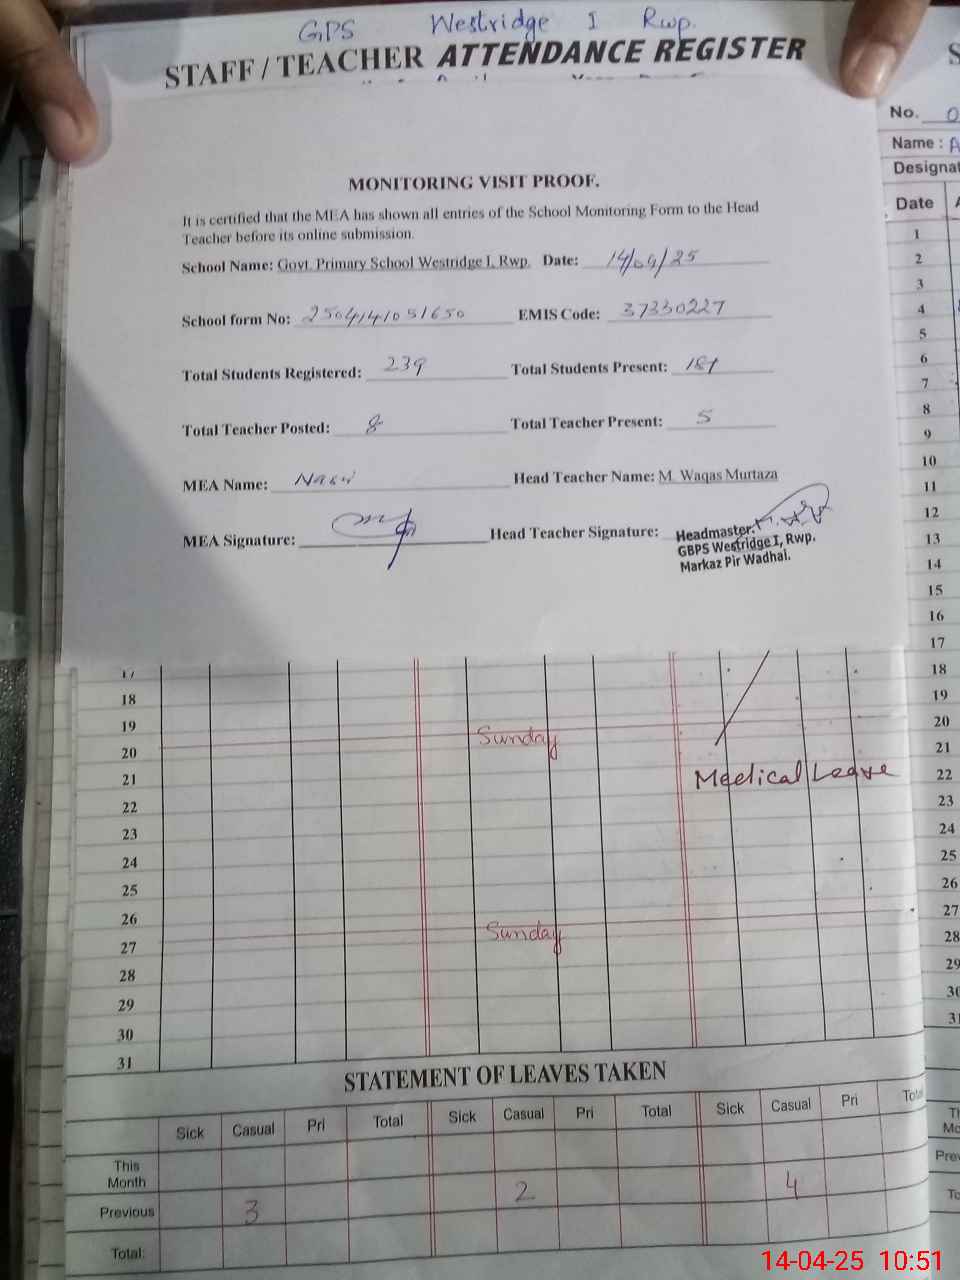 GPS Westridge I Rwp.
STAFF / TEACHER ATTENDANCE REGISTER
MONITORING VISIT PROOF.
It is certified that the MEA has shown all entries of the School Monitoring Form to the Head
Teacher before its online submission.
School Name: Govt. Primary School Westridge I, Rwp. Date: 14/04/25
School form No: 2504141051650 EMIS Code: 37330227
Total Students Registered: 239 Total Students Present:
Total Teacher Posted: 8 Total Teacher Present: 5
MEA Name: Head Teacher Name: M. Waqas Murtaza
MEA Signature: Head Teacher Signature:
Headmaster.
GBPS Westridge I, Rwp.
Markaz Pir Wadhai.
17
18
19
20 Sunday
21 Medical Leave
22
23
24
25
26
27 Sunday
28
29
30
31
STATEMENT OF LEAVES TAKEN
Sick Casual Pri Total Sick Casual Pri Total Sick Casual Pri
This
Month
Previous 3 2 4
Total:
No.
Name :
Date
1
2
3
4
5
6
7
8
9
10
11
12
13
14
15
16
17
18
19
20
21
22
23
24
25
26
27
28
14-04-25 10:51